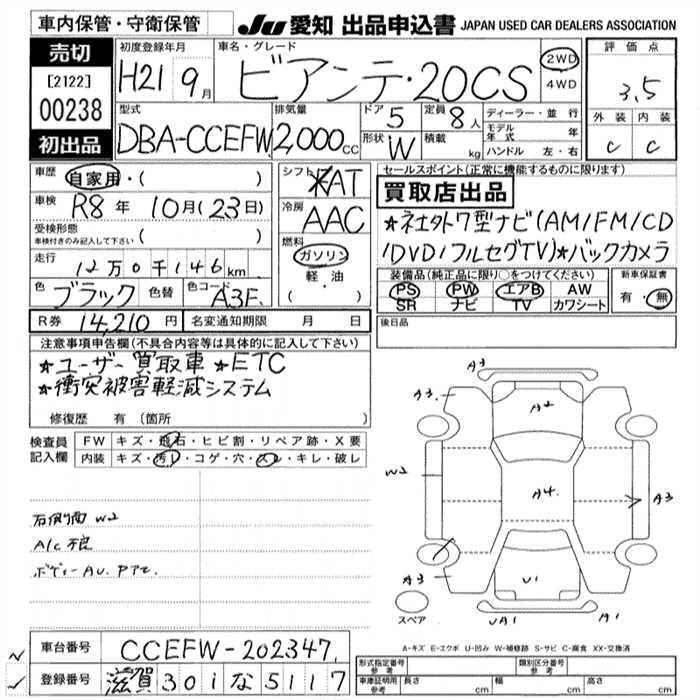 車内保管・守衛保管
JU 愛知 出品申込書 JAPAN USED CAR DEALERS ASSOCIATION
売切
[2122]
00238
初出品
初度登録年月
H21 9月
車名・グレード
ビアンテ・20CS
2WD
4WD
評価点
3,5
外装 内装
C C
型式
DBA-CCEFW
排気量
2,000cc
ドア 5
形状 W
定員 8人
積載 kg
ディーラー・並行
モデル年式 年
ハンドル 左・右
車歴 自家用・( )
車検 R8年 10月(23日)
受検形態
車検付きのみ記入して下さい ( )
走行 12万0千146km
色 ブラック 色替 色コード A3F
シフト FAT
冷房 AAC
燃料
ガソリン
軽・油
( )
R券 14,210円 名変通知期限 月 日
セールスポイント(正常に機能するものに限ります)
買取店出品
★社外7型ナビ(AM/FM/CD
/DVD/フルセグTV)★バックカメラ
装備品(純正品に限り○をつけてください) 新車保証書
PS PW エアB AW
SR ナビ TV カワシート
有・無
後日品
注意事項申告欄(不具合内容等は具体的に記入して下さい)
★ユーザー買取車 ★ETC
★衝突被害軽減システム
修復歴 有(箇所 )
検査員記入欄
FW キズ・飛石・ヒビ割・リペア跡・X要
内装 キズ・汚レ・コゲ・穴・スレ・キレ・破レ
右側面 W2
A/C 不良
ボディーAU. Pアセ.
A3
A3.
A2
W2
A4.
A3
A3
U1
UA1
A1
スペア
A-キズ E-エクボ U-凹み W-補修跡 S-サビ C-腐食 XX-交換済
車台番号 CCEFW-202347
登録番号 滋賀 301 な 5117
形式指定番号 参考
類別区分番号 参考
車庫証明用 参考 長さ cm 幅 cm 高さ cm